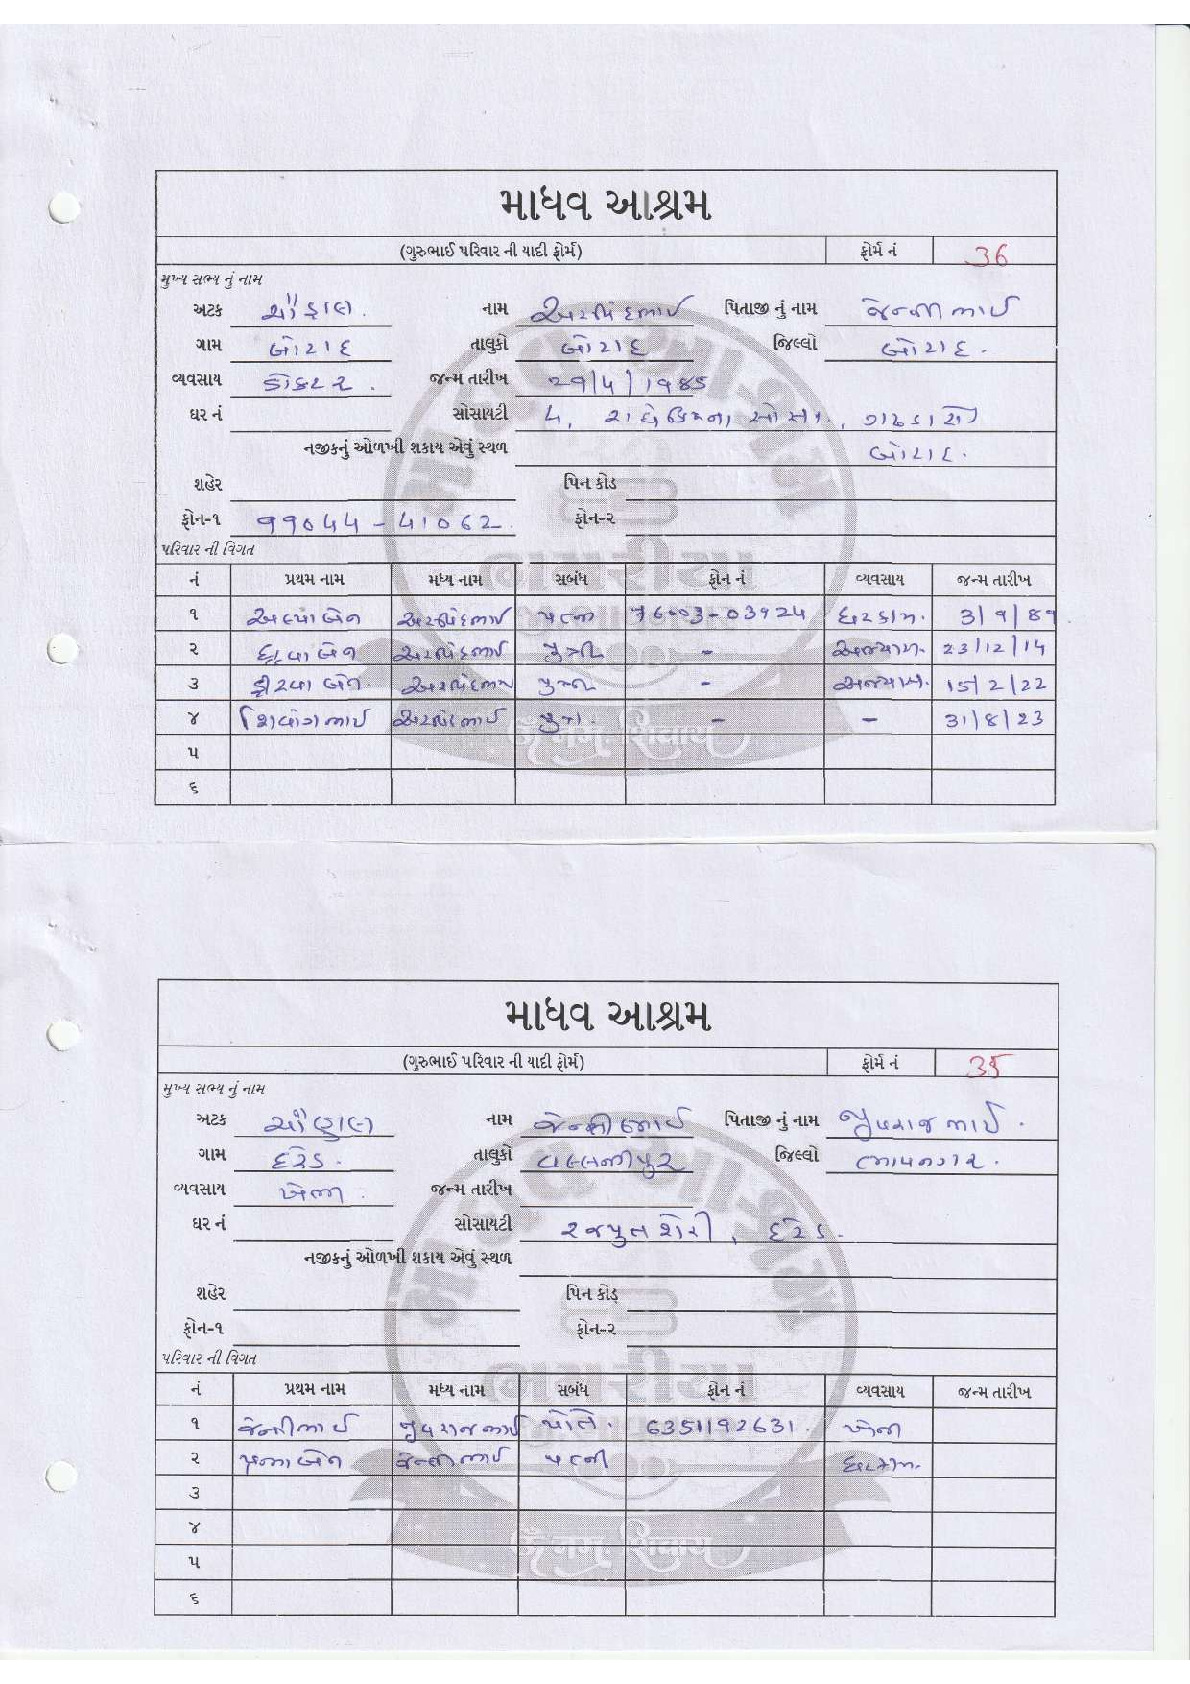 માધવ આશ્રમ
(ગુરુભાઈ પરિવાર ની યાદી ફોર્મ) ફોર્મ નં 36
મુખ્ય સભ્ય નું નામ
અટક નામ અરવિંદભાઈ પિતાજી નું નામ જેન્તીભાઈ
ગામ બોટાદ તાલુકો બોટાદ જિલ્લો બોટાદ.
વ્યવસાય ડોકટર. જન્મ તારીખ ૨૧/4/૧૯૪૬
ઘર નં સોસાયટી ૫, રાધેક્રિષ્ના સોસા., ગઢડા રોડ
નજીકનું ઓળખી શકાય એવું સ્થળ બોટાદ.
શહેર પિન કોડ
ફોન-૧ 99044-41062 ફોન-૨
પરિવાર ની વિગત
નં પ્રથમ નામ મધ્ય નામ સબંધ ફોન નં વ્યવસાય જન્મ તારીખ
૧ અલ્પાબેન અરવિંદભાઈ પત્ની ઘરકામ.
૨ અરવિંદભાઈ પુત્રી - અભ્યાસ. 23/12/14
૩ અરવિંદભાઈ પુત્રી - અભ્યાસ. 15/2/22
૪ શિવાંગભાઈ અરવિંદભાઈ પુત્ર. - - 31/8/23
૫
૬
માધવ આશ્રમ
(ગુરુભાઈ પરિવાર ની યાદી ફોર્મ) ફોર્મ નં 35
મુખ્ય સભ્ય નું નામ
અટક નામ જેન્તીભાઈ પિતાજી નું નામ
ગામ દરેડ. તાલુકો વલ્લભીપુર જિલ્લો ભાવનગર.
વ્યવસાય ખેતી. જન્મ તારીખ
ઘર નં સોસાયટી રજપુત શેરી, દરેડ.
નજીકનું ઓળખી શકાય એવું સ્થળ
શહેર પિન કોડ
ફોન-૧ ફોન-૨
પરિવાર ની વિગત
નં પ્રથમ નામ મધ્ય નામ સબંધ ફોન નં વ્યવસાય જન્મ તારીખ
૧ જેન્તીભાઈ પોતે. 6351192631. ખેતી
૨ જેન્તીભાઈ પત્ની ઘરકામ.
૩
૪
૫
૬